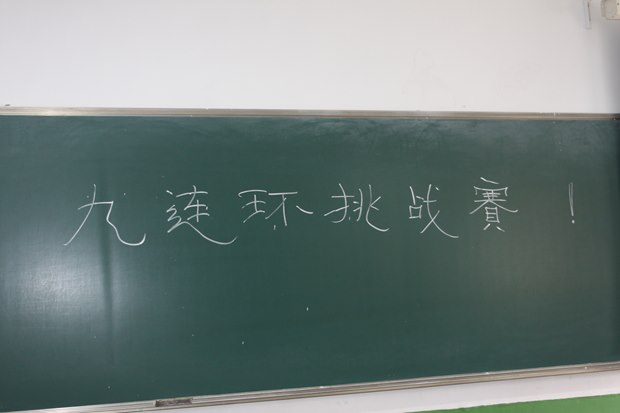 九连环挑战賽!